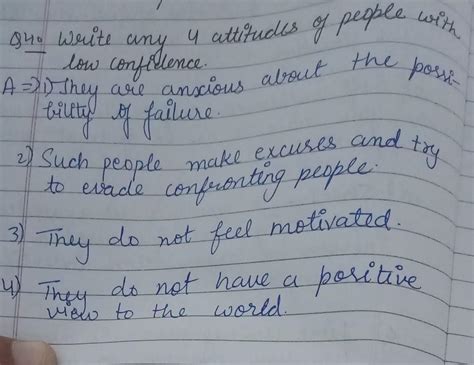 Q4. Write any 4 attitudes of people with
low confidence.
A ⇒ 1) They are anxious about the possi-
bility of failure.
2) Such people make excuses and try
to evade confronting people.
3) They do not feel motivated.
4) They do not have a positive
view to the world.